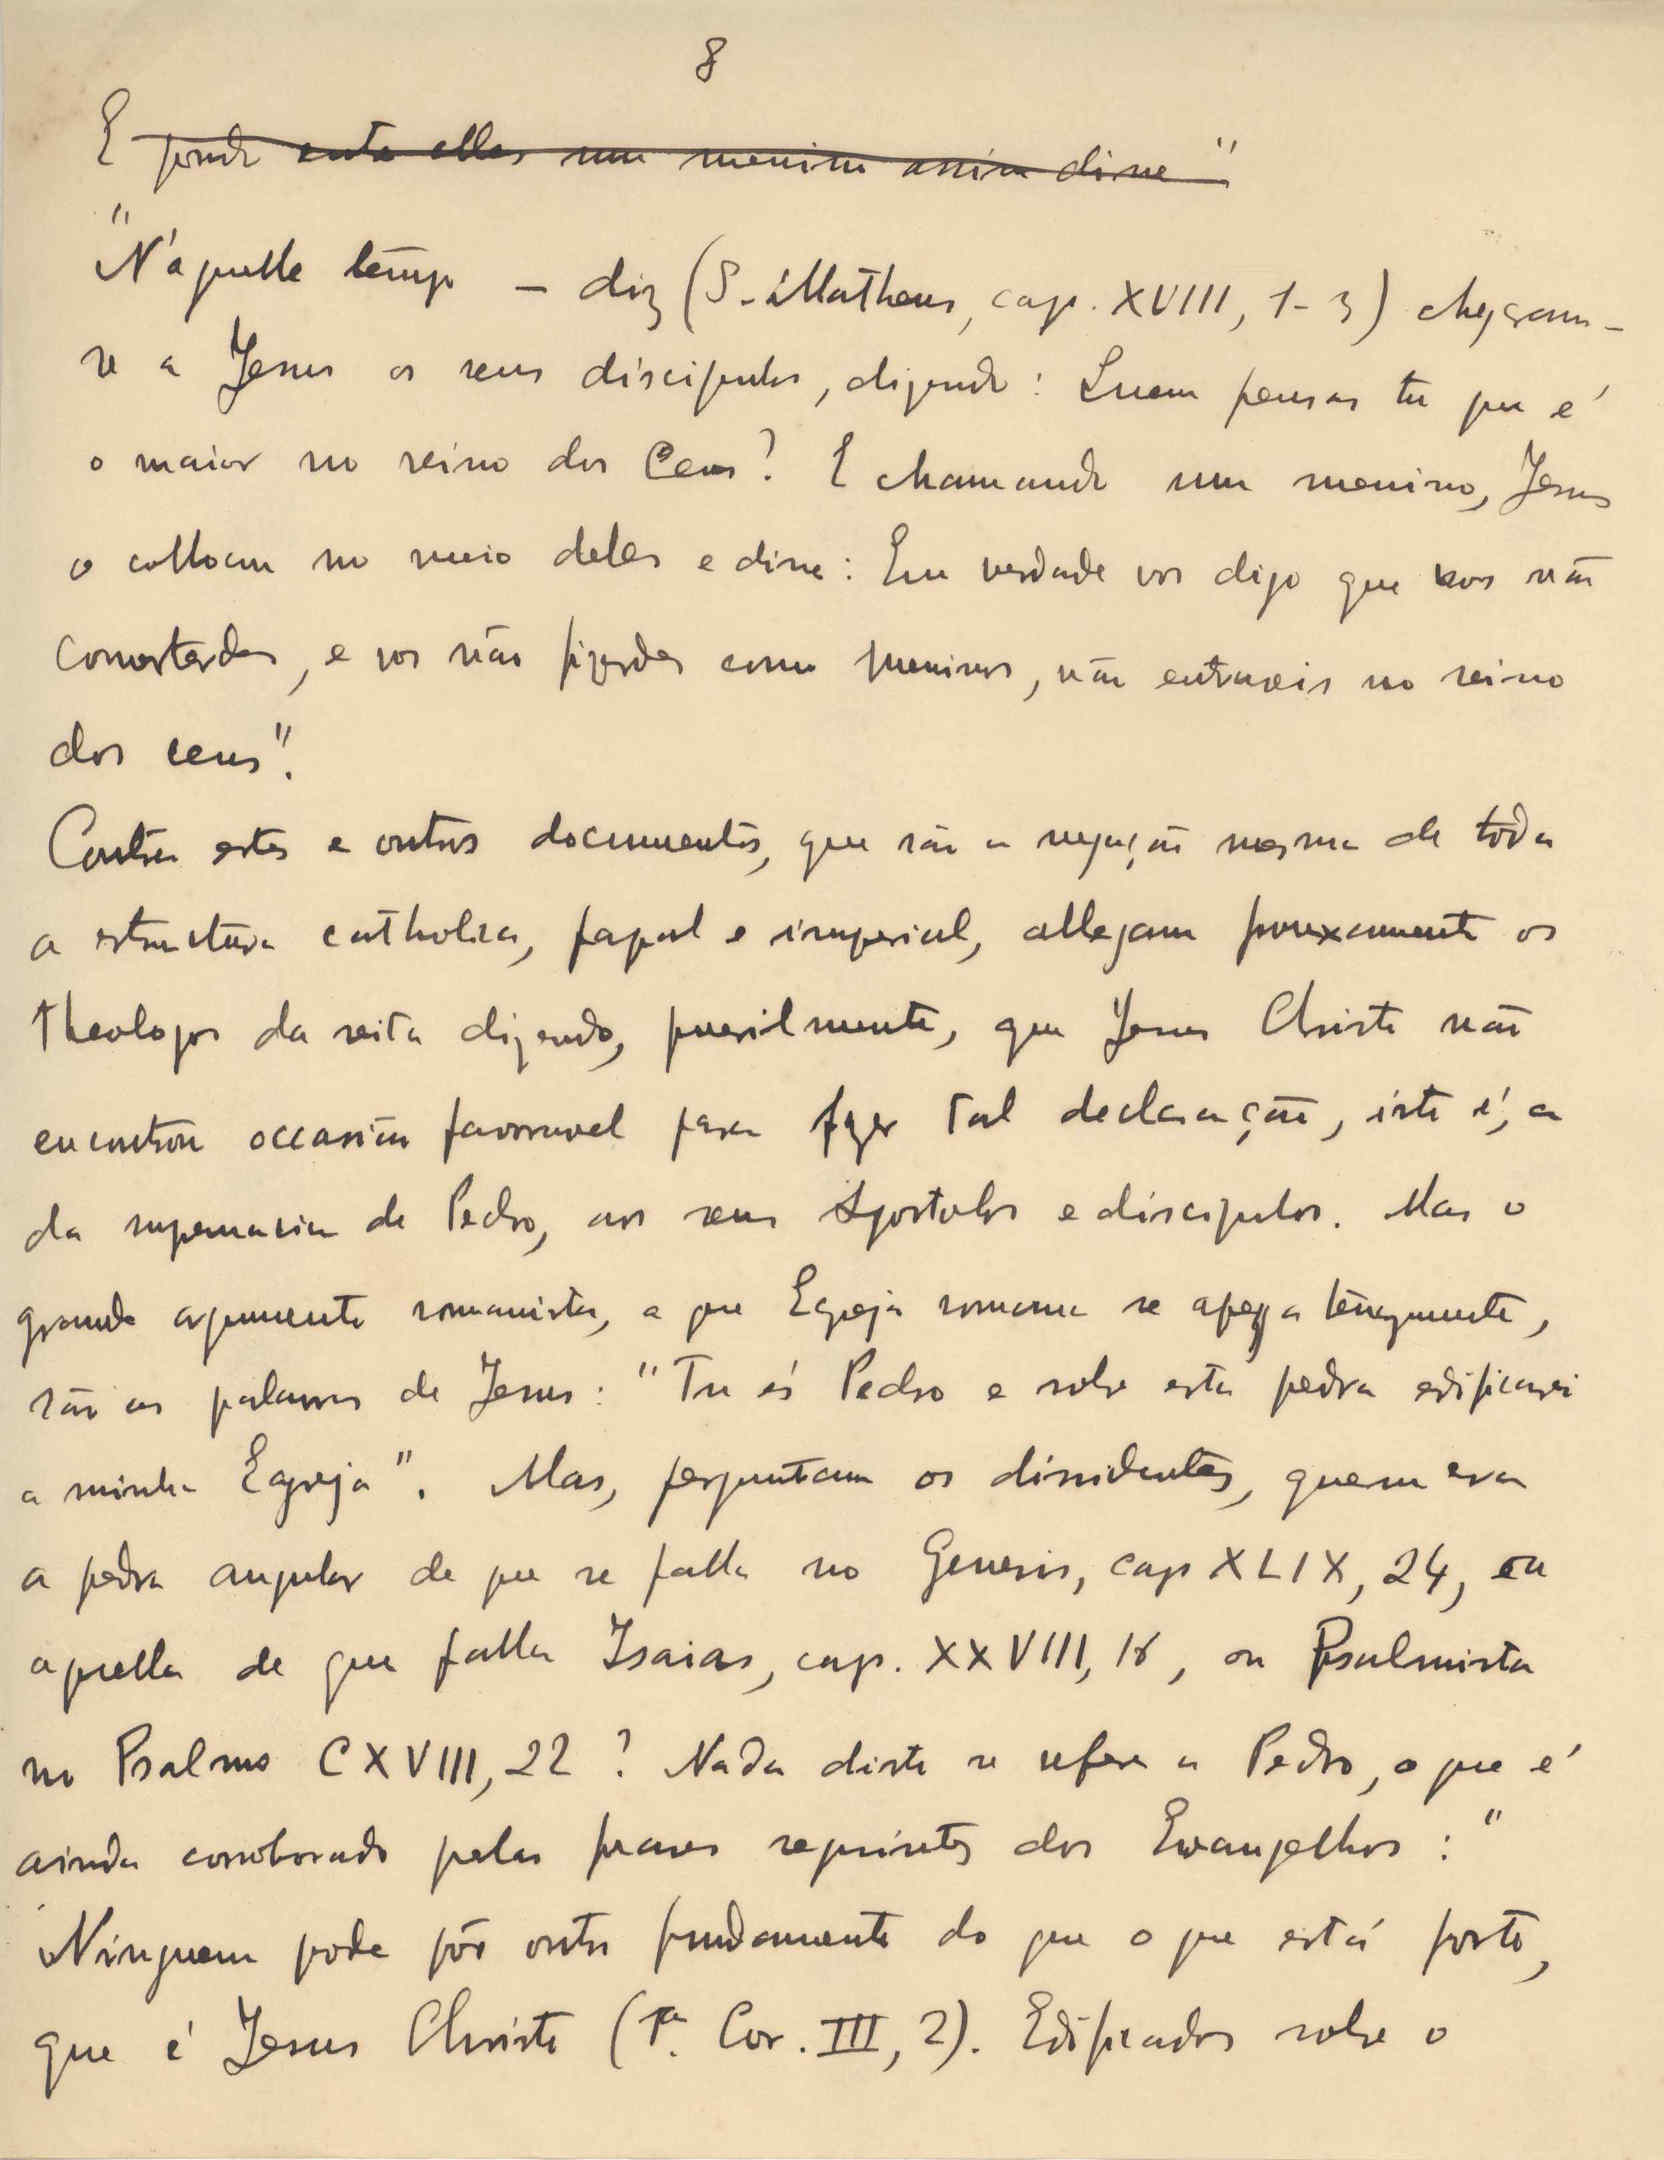 8
E pondo entre elles um menino assim disse"
"N'aquelle tempo – diz (S. Matheus, cap. XVIII, 1-3) chegaram-
se a Jesus os seus discipulos, dizendo: Quem pensas tu que é
o maior no reino dos Ceus? E chamando um menino, Jesus
o collocou no meio deles e disse: Em verdade vos digo que vos não
converterdes, e vos não fizerdes como meninos, não entrareis no reino
dos ceus".
Contra estes e outros documentos, que são a negação mesma de toda
a estructura catholica, papal e imperial, allegam frouxamente os
theologos da seita dizendo, puerilmente, que Jesus Christo não
encontrou occasião favoravel para fazer tal declaração, isto é, a
da supremacia de Pedro, aos seus Apostolos e discipulos. Mas o
grande argumento romanista, a que Egreja romana se apega tenazmente,
são as palavras de Jesus: "Tu és Pedro e sobre esta pedra edificarei
a minha Egreja". Mas, perguntam os dissidentes, quem era
a pedra angular de que se falla no Genesis, cap XLIX, 24, ou
aquella de que falla Isaias, cap. XXVIII, 16, ou Psalmista
no Psalmo CXVIII, 22? Nada disto se refere a Pedro, o que é
ainda corroborado pelas frases seguintes dos Evangelhos: "
Ninguem pode pôr outro fundamento do que o que está posto,
que é Jesus Christo (1ª. Cor. III, 2). Edificados sobre o